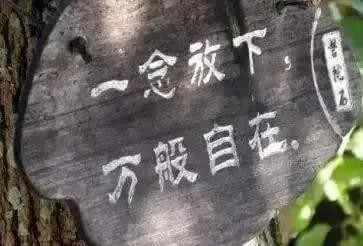 一念放下，
万般自在.